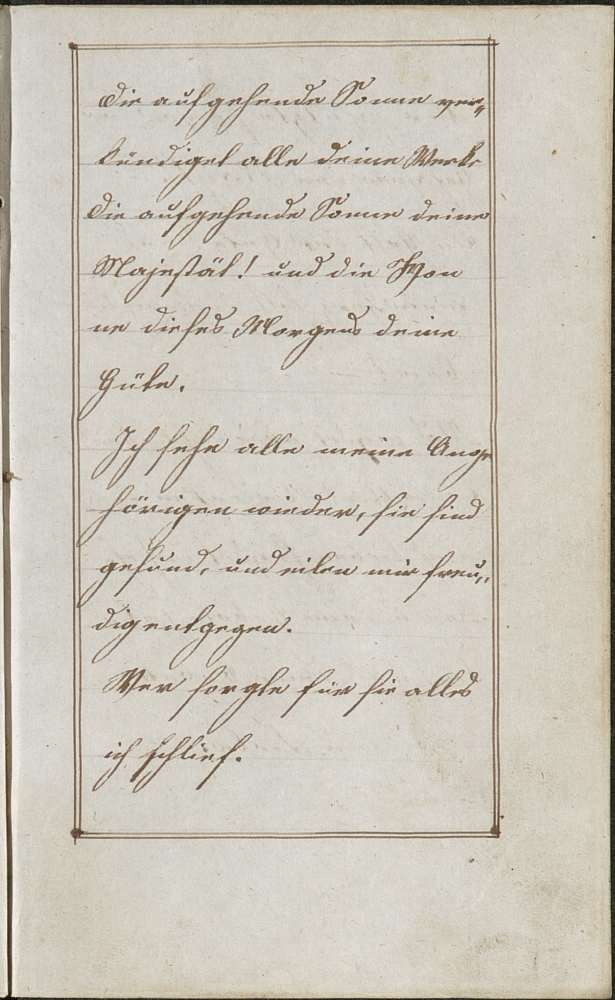 Die aufgehende Sonne ver„
kündiget alle deine Werke
Die aufgehende Sonne deine
Majestät! und die Won
ne dieses Morgens deine
Güte.
Ich sehe alle meine Ange
hörigen wieder, sie sind
gesund, und eilen mir freu„
dig entgegen.
Wer sorgte für sie alles
ich schlief.